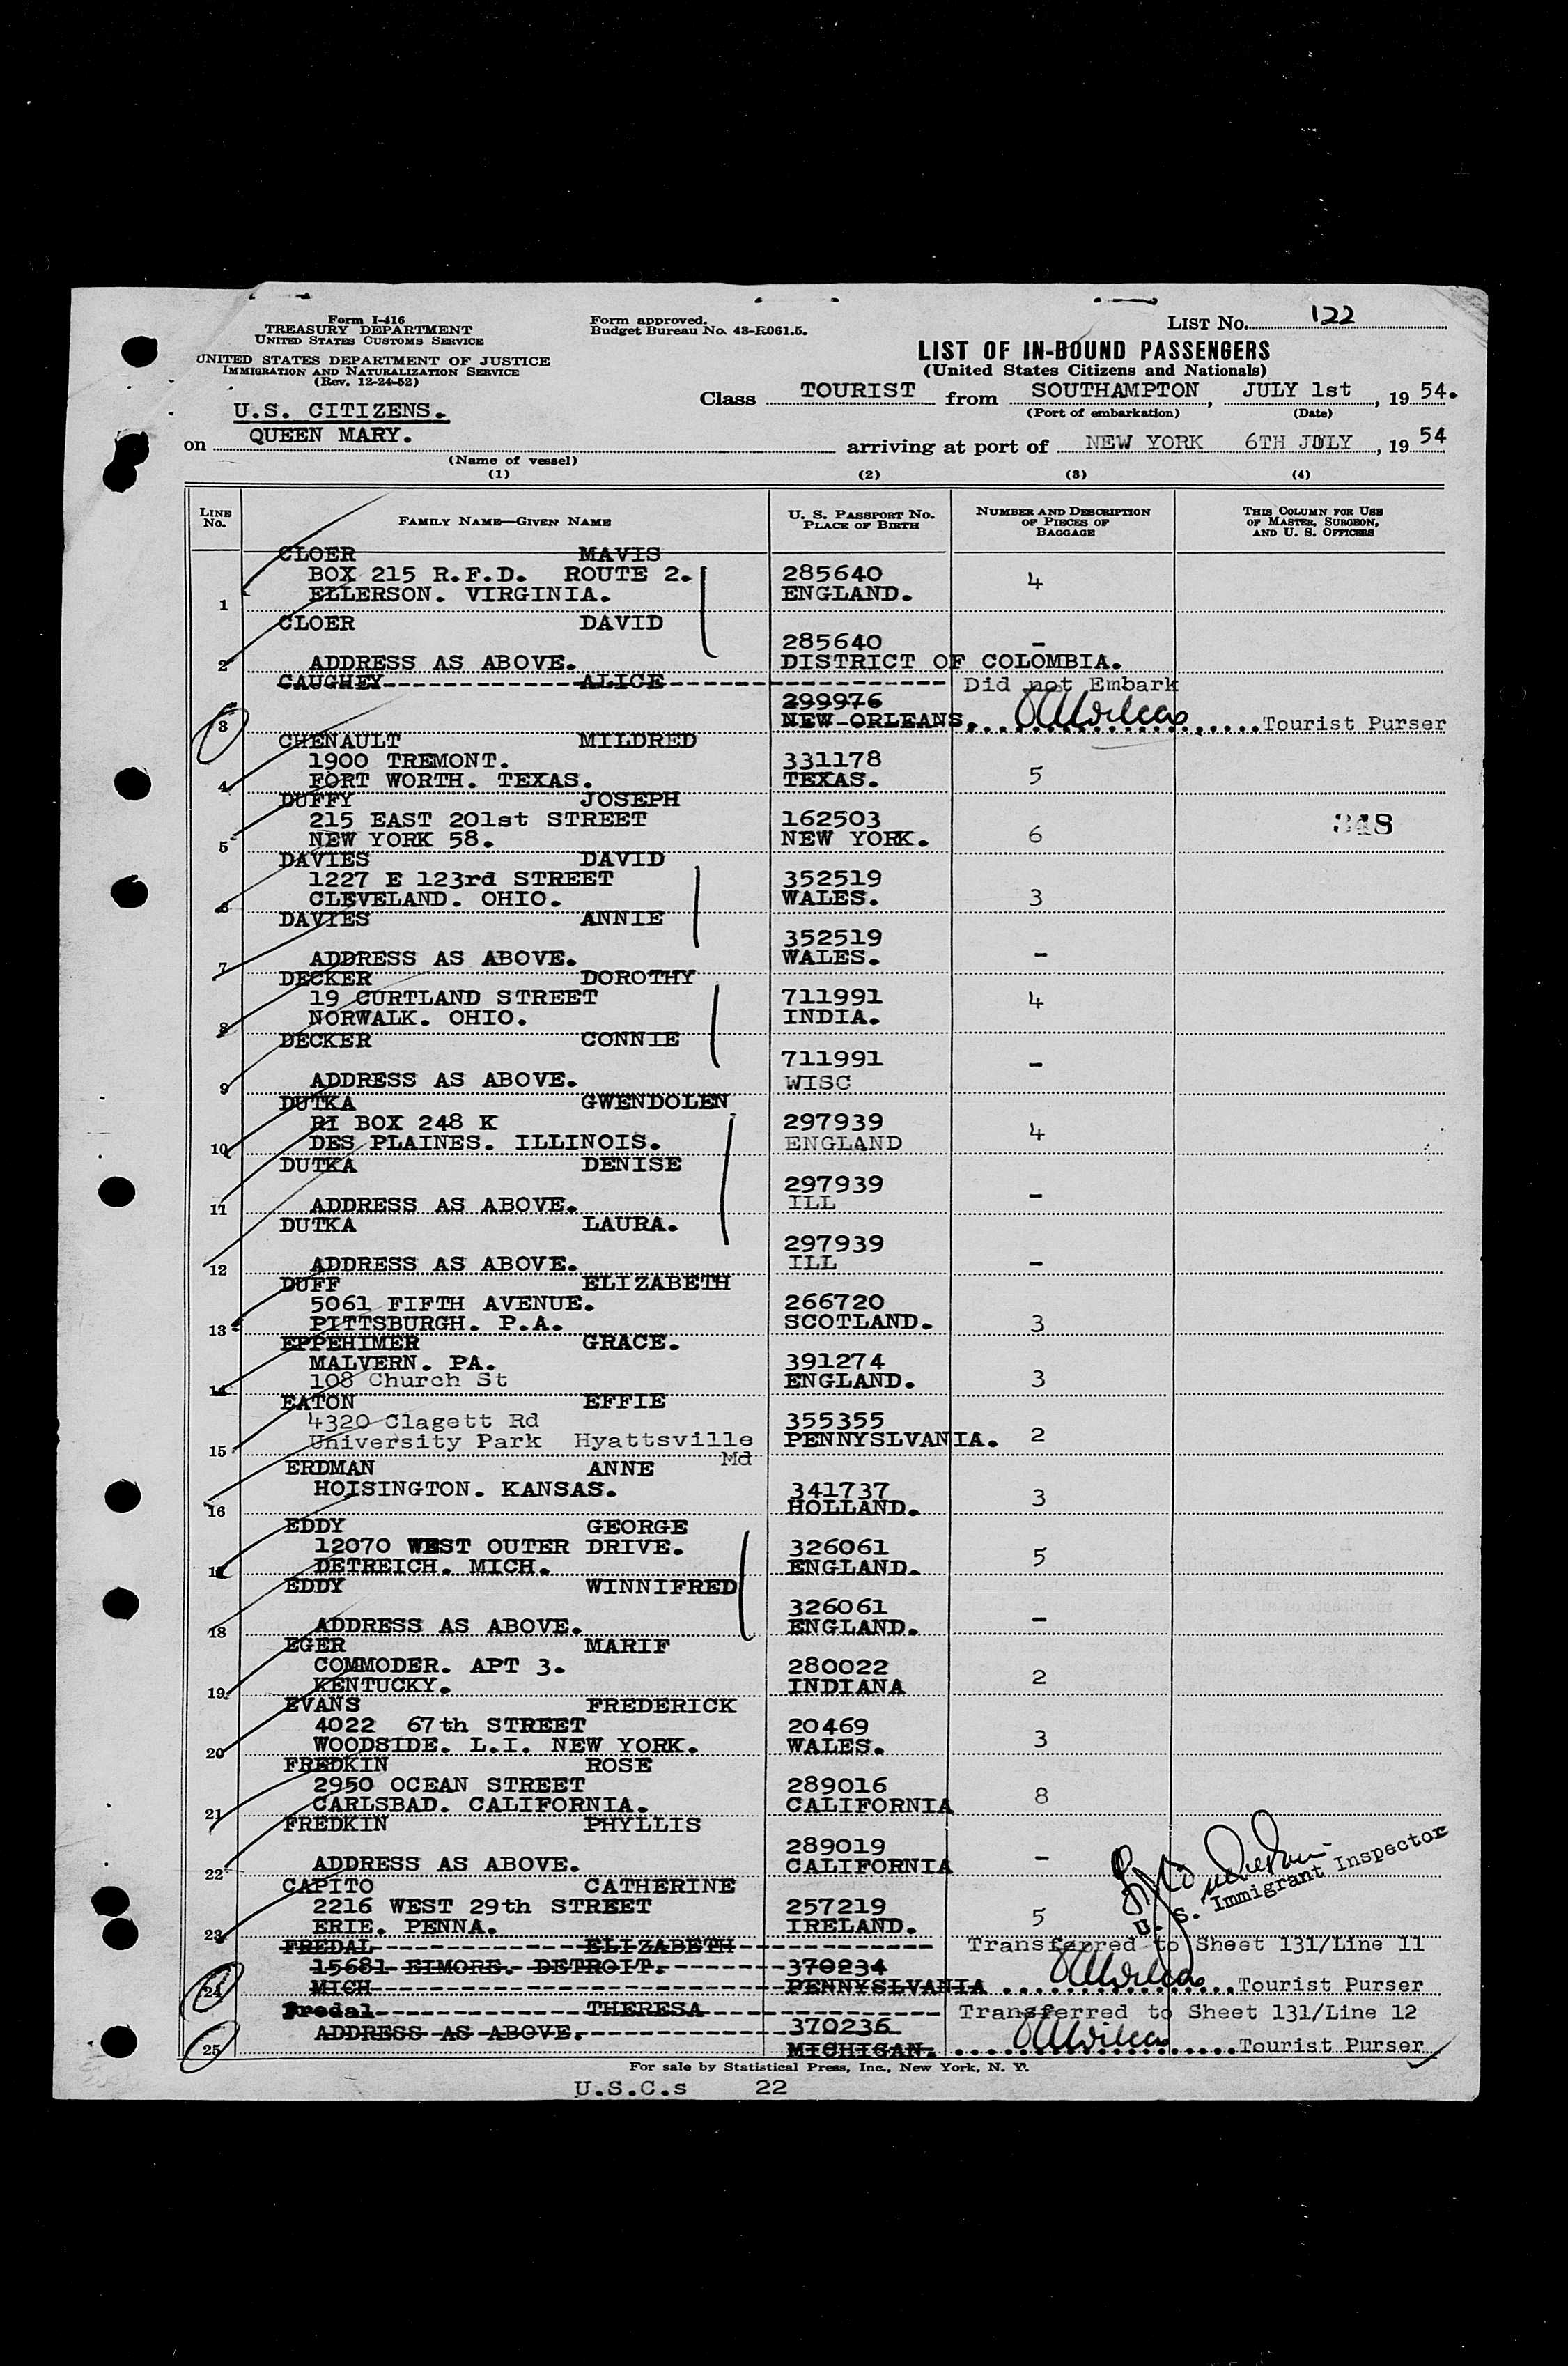 Form I-416
TREASURY DEPARTMENT
UNITED STATES CUSTOMS SERVICE
UNITED STATES DEPARTMENT OF JUSTICE
IMMIGRATION AND NATURALIZATION SERVICE
(Rev. 12-24-52)
Form approved.
Budget Bureau No. 43-R061.5.
LIST No. 122
LIST OF IN-BOUND PASSENGERS
(United States Citizens and Nationals)
Class TOURIST from SOUTHAMPTON, JULY 1st, 19 54.
(Port of embarkation) (Date)
U.S. CITIZENS.
on QUEEN MARY. arriving at port of NEW YORK 6TH JULY, 19 54
(Name of vessel)
(1) (2) (3) (4)
LINE No. FAMILY NAME—GIVEN NAME U. S. PASSPORT No. PLACE OF BIRTH NUMBER AND DESCRIPTION OF PIECES OF BAGGAGE THIS COLUMN FOR USE OF MASTER, SURGEON, AND U. S. OFFICERS
CLOER MAVIS
BOX 215 R.F.D. ROUTE 2. 285640 4
1 ELLERSON. VIRGINIA. ENGLAND.
CLOER DAVID
285640 -
2 ADDRESS AS ABOVE. DISTRICT OF COLOMBIA.
CAUGHEY ALICE Did not Embark
299976
3 NEW ORLEANS. Tourist Purser
CHENAULT MILDRED
1900 TREMONT. 331178 5
4 FORT WORTH. TEXAS. TEXAS.
DUFFY JOSEPH
215 EAST 201st STREET 162503 348
5 NEW YORK 58. NEW YORK. 6
DAVIES DAVID
1227 E 123rd STREET 352519
6 CLEVELAND. OHIO. WALES. 3
DAVIES ANNIE
352519
7 ADDRESS AS ABOVE. WALES. -
DECKER DOROTHY
19 CURTLAND STREET 711991 4
8 NORWALK. OHIO. INDIA.
DECKER CONNIE
711991 -
9 ADDRESS AS ABOVE. WISC
DUTKA GWENDOLEN
RI BOX 248 K 297939 4
10 DES PLAINES. ILLINOIS. ENGLAND
DUTKA DENISE
297939 -
11 ADDRESS AS ABOVE. ILL
DUTKA LAURA.
297939
12 ADDRESS AS ABOVE. ILL -
DUFF ELIZABETH
5061 FIFTH AVENUE. 266720
13 PITTSBURGH. P.A. SCOTLAND. 3
EPPEHIMER GRACE.
MALVERN. PA. 391274
14 108 Church St ENGLAND. 3
EATON EFFIE
4320 Clagett Rd 355355
15 University Park Hyattsville Md PENNYSLVANIA. 2
ERDMAN ANNE
HOISINGTON. KANSAS. 341737 3
16 HOLLAND.
EDDY GEORGE
12070 WEST OUTER DRIVE. 326061 5
17 DETREICH. MICH. ENGLAND.
EDDY WINNIFRED
326061 -
18 ADDRESS AS ABOVE. ENGLAND.
EGER MARIF
COMMODER. APT 3. 280022 2
19 KENTUCKY. INDIANA
EVANS FREDERICK
4022 67th STREET 20469 3
20 WOODSIDE. L.I. NEW YORK. WALES.
FREDKIN ROSE
2950 OCEAN STREET 289016 8
21 CARLSBAD. CALIFORNIA. CALIFORNIA
FREDKIN PHYLLIS
289019 -
22 ADDRESS AS ABOVE. CALIFORNIA
U. S. Immigrant Inspector
CAPITO CATHERINE
2216 WEST 29th STREET 257219 5
23 ERIE. PENNA. IRELAND.
FREDAL ELIZABETH Transferred to Sheet 131/Line 11
15681 EIMORE. DETROIT. 370234
24 MICH PENNYSLVANIA Tourist Purser
Fredal THERESA Transferred to Sheet 131/Line 12
ADDRESS AS ABOVE. 370236
25 MICHIGAN. Tourist Purser
For sale by Statistical Press, Inc., New York, N. Y.
U.S.C.s 22